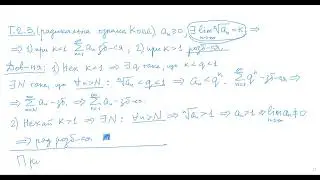 Т.2.3. (радикальна ознака Коші) aₙ ≥ 0, ∃ lim ⁿ√aₙ = k
n→∞
⇒ 1) при k<1 ∑ aₙ зб-ся, 2) при k>1 розб-ся.
Дов-ня: 1) Нех k<1 ⇒ ∃ q таке, що k<q<1
∃ N таке, що ∀n>N: ⁿ√aₙ < q < 1 ⇒ aₙ < qⁿ ⇒ ∑ qⁿ - зб-ся ⇒
⇒ ∑ aₙ - зб. ⇒ ∑ aₙ - зб-ся.
2) Нехай k>1 ⇒ ∃ N: ∀n>N ⇒ ⁿ√aₙ > 1 ⇒ aₙ > 1 ⇒ lim aₙ ≠ 0
⇒ ряд розб-ся.
При